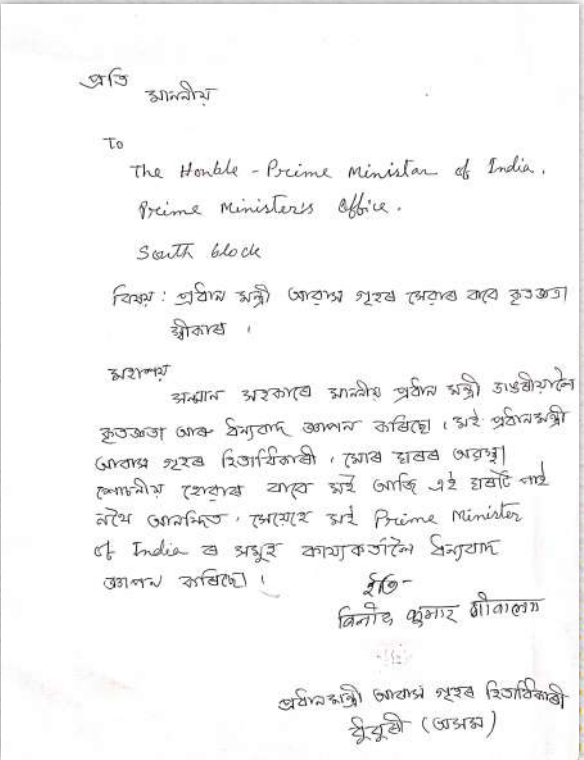 প্ৰতি
মাননীয়
To
The Honble - Prime Ministar of India.
Prime Minister's Office.
South block
বিষয় : প্ৰধান মন্ত্ৰী আবাস গৃহৰ সেৱাৰ বাবে কৃতজ্ঞতা
স্বীকাৰ ।
মহাশয়
সন্মান সহকাৰে মাননীয় প্ৰধান মন্ত্ৰী ডাঙৰীয়ালৈ
কৃতজ্ঞতা আৰু ধন্যবাদ জ্ঞাপন কৰিছো । মই প্ৰধানমন্ত্ৰী
আবাস গৃহৰ হিতাধিকাৰী । মোৰ ঘৰৰ অৱস্থা
শোচনীয় হোৱাৰ বাবে মই আজি এই ঘৰটি পাই
নথৈ আনন্দিত । সেয়েহে মই Prime Minister
of India ৰ সমূহ কাৰ্য্যকৰ্তালৈ ধন্যবাদ
জ্ঞাপন কৰিছো ।
ইতি-
কুমাৰ
প্ৰধানমন্ত্ৰী আবাস গৃহৰ হিতাধিকাৰী
ধুবুৰী (অসম)